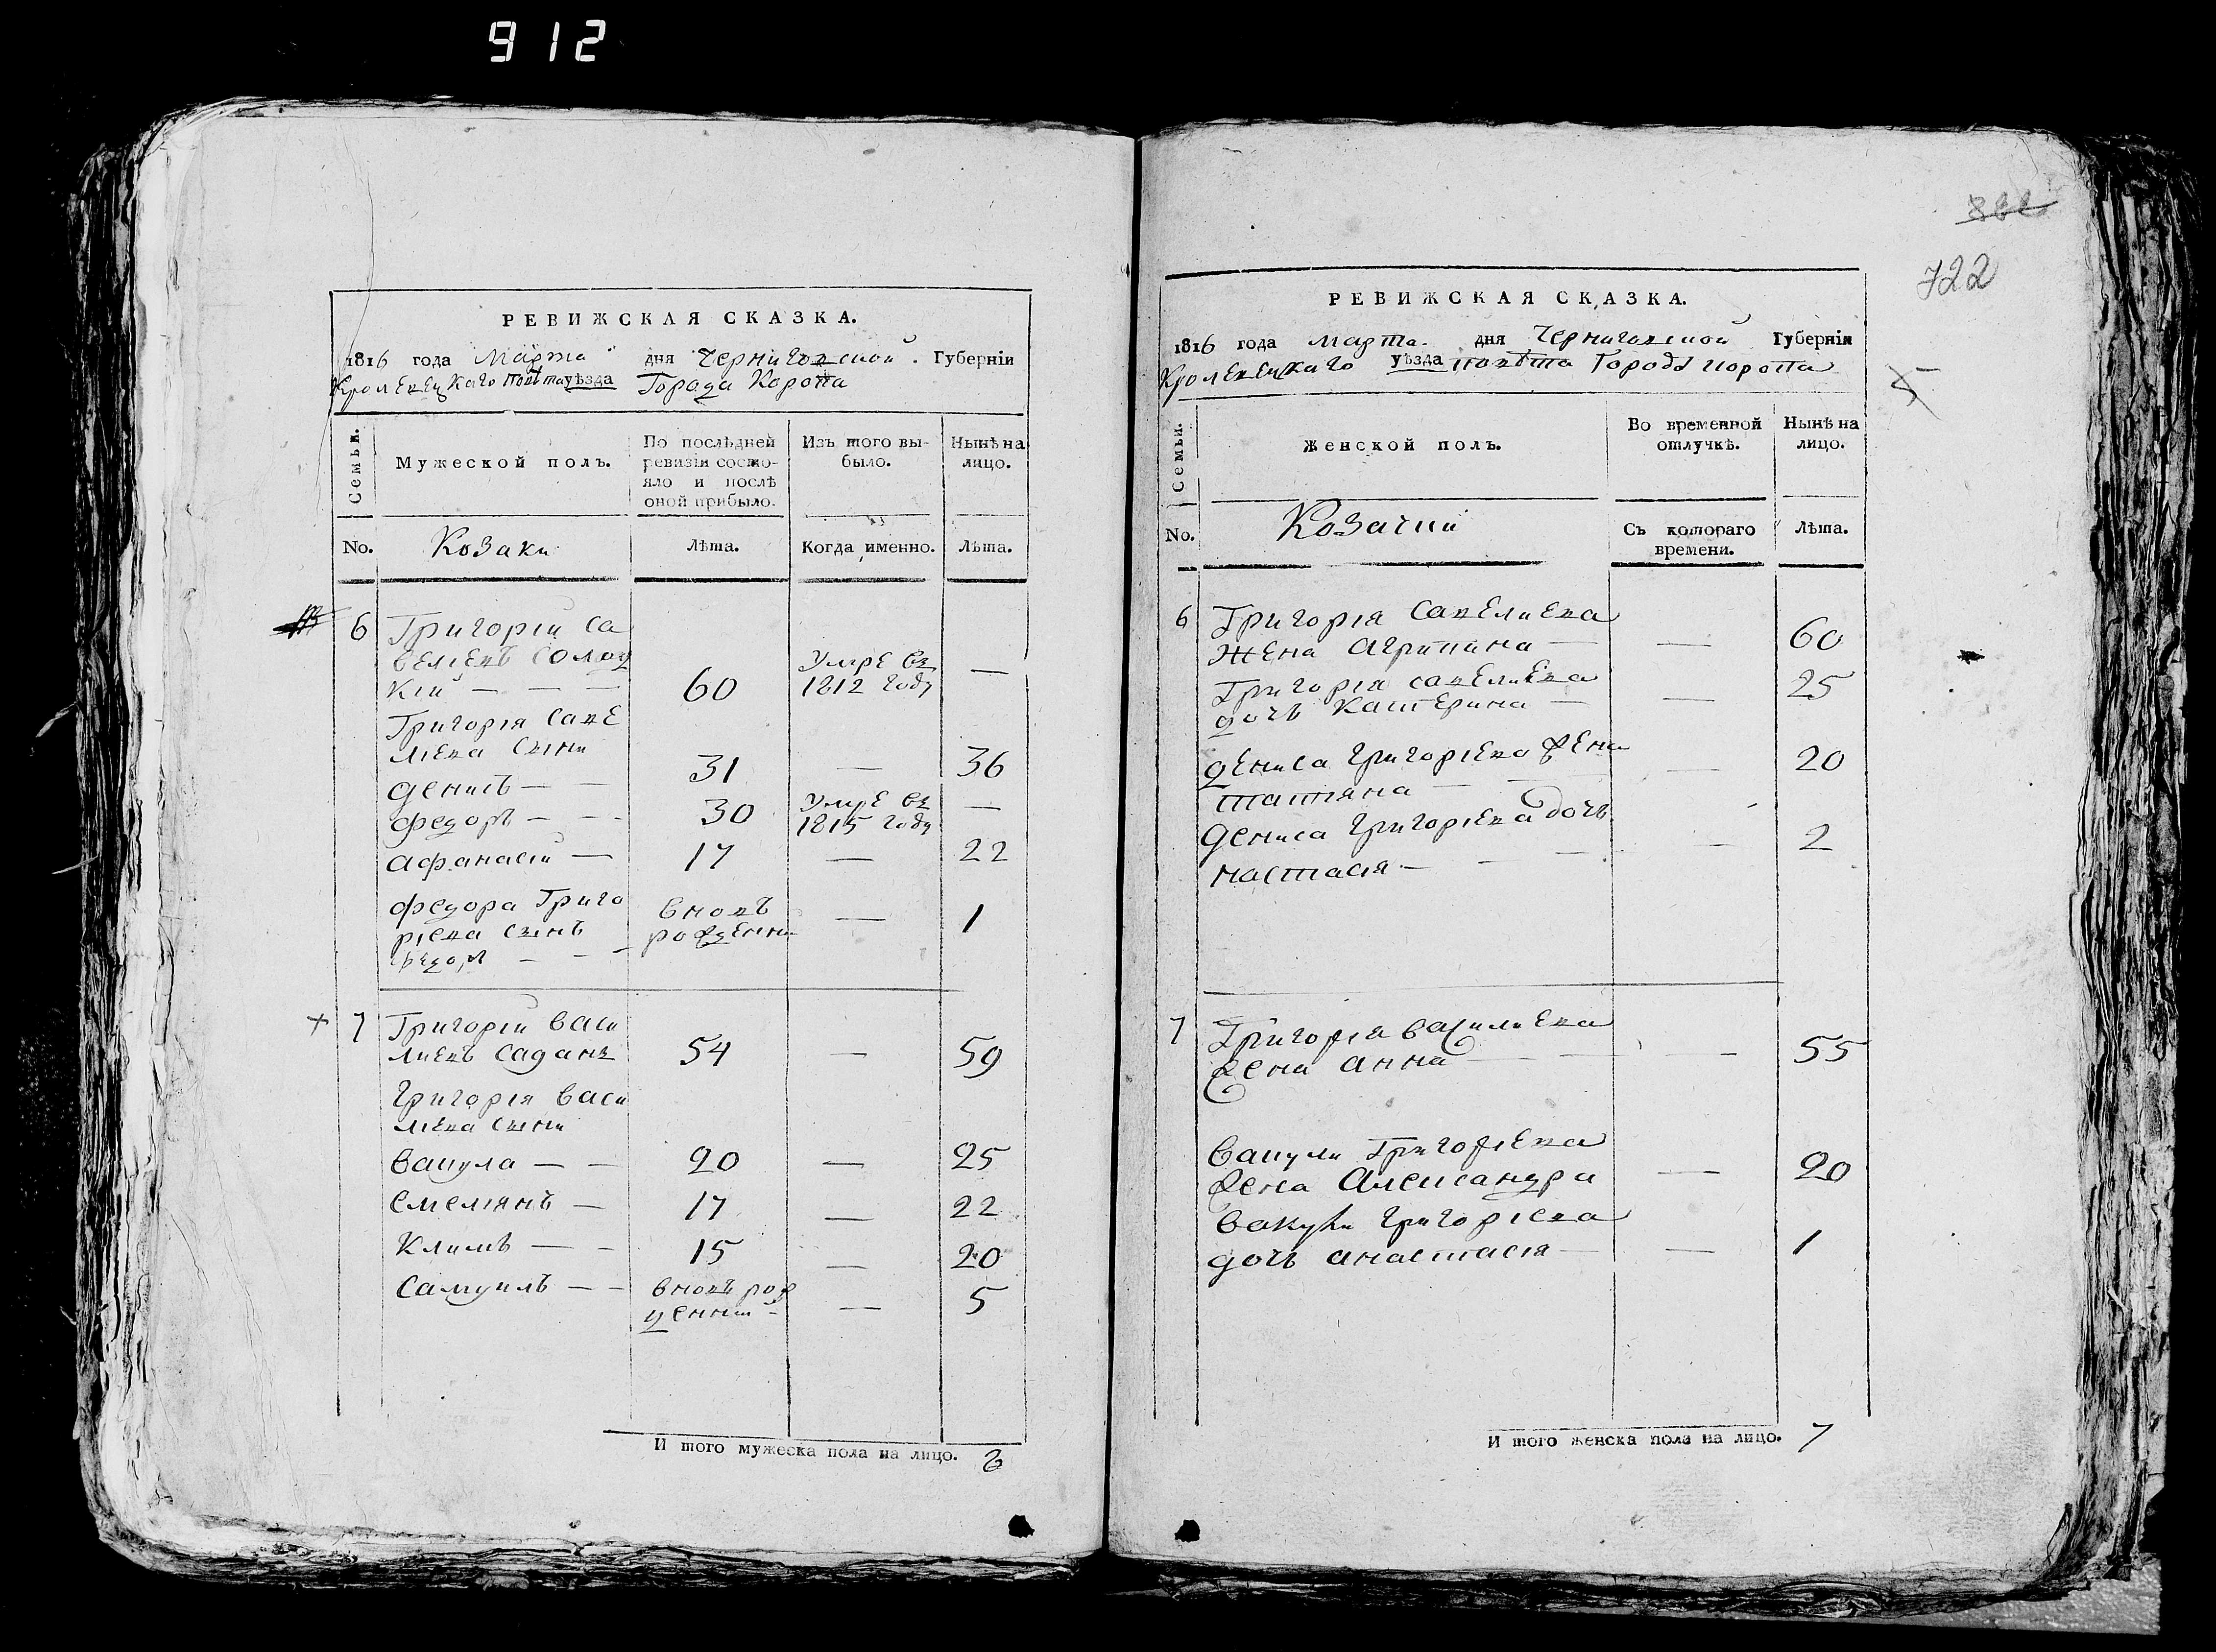 912
РЕВИЖСКАЯ СКАЗКА.
1816 года Марта дня Черниговской. Губерніи
Кролевецкаго Повѣта уѣзда Города Коропа
Семьи.
Мужеской полъ.
По послѣдней
ревизіи состо-
яло и послѣ
оной прибыло.
Изъ того вы-
было.
Нынѣ на
лицо.
No.
Козаки
Лѣта.
Когда именно.
Лѣта.
6 Григорій Са
велиевъ Солоц
кій — — — 60 Умре въ 1812 году —
Григорія Саве
лиева сыни
Денисъ — — 31 — 36
Федоръ — — - 30 Умре въ 1815 году —
Афанасій — 17 — 22
Федора Григо
ріева сынъ
Федоръ — — - вновь рожденни — 1
7 Григорій Васи
лиевъ Саданъ 54 — 59
Григорія Васи
лиева сыни
Вакула — — 20 — 25
Емелиянъ — 17 — 22
Климъ — - 15 — 20
Самуилъ — — вновь рож
денний - — 5
И того мужеска пола на лицо. 8
722
РЕВИЖСКАЯ СКАЗКА.
1816 года Марта. дня Черниговской Губерніи
Кролевецкаго уѣзда повѣта Города Коропа
5
Семьи.
Женской полъ.
Во временной
отлучкѣ.
Нынѣ на
лицо.
No.
Козачки
Съ котораго
времени.
Лѣта.
6 Григорія Савелиева
жена Агрипина — — 60
Григорія Савелиева
дочь Катерина — — 25
Дениса Григоріева жена
Татяна — — 20
Дениса Григоріева дочь
Настасія — — — - 2
7 Григорія Василиева
жена Анна — — - 55
Вакули Григоріева
жена Александра — 20
Вакули Григоріева
дочь Анастасія — — 1
И того женска пола на лицо. 7